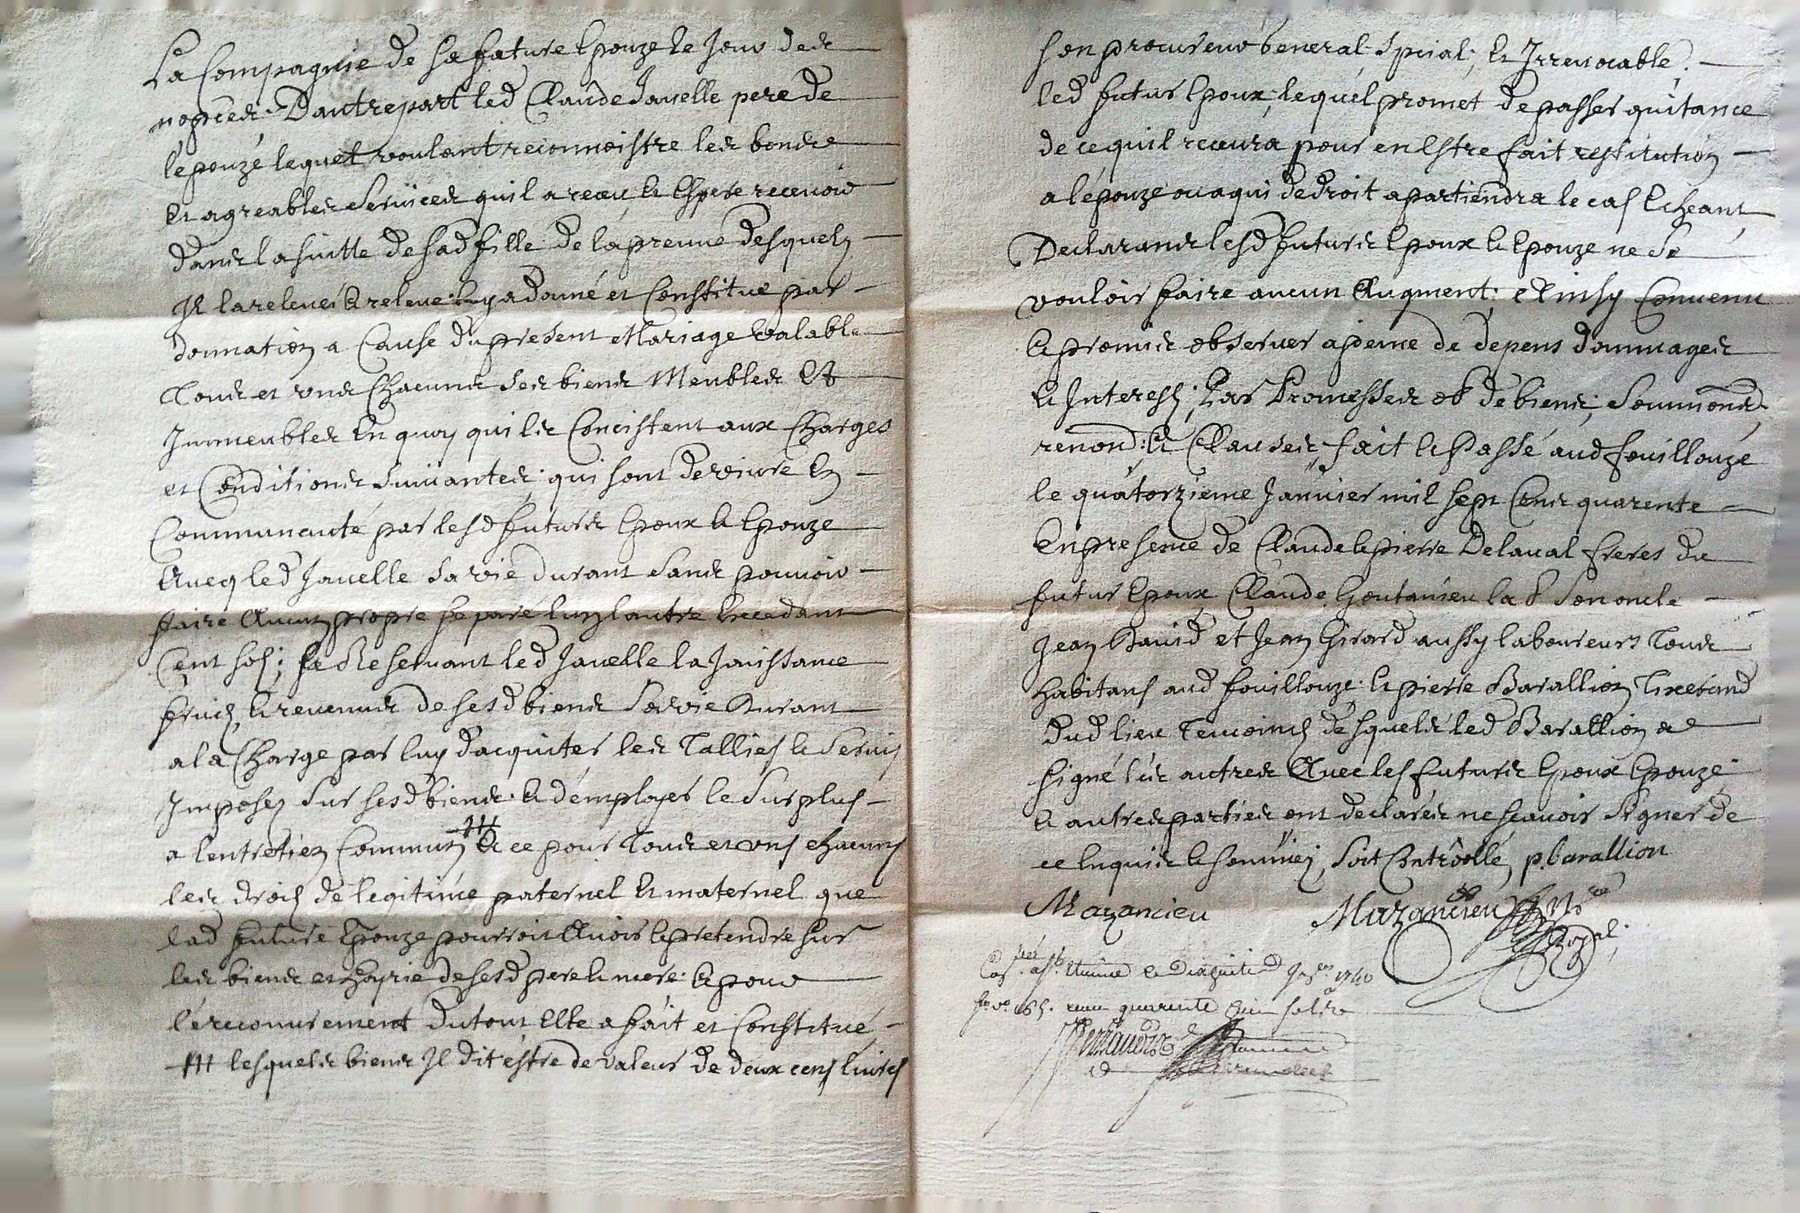 La Compagnie de sa future Epouze le Jour des
nopces. Dautrepart led Claude Javelle pere de
l'epouze lequel voulant reconnoistre les bons
et agreables services quil a receu et Espere recevoir
dans la suitte de sad fille de la preuve desquels
Il la relevé et releve luy a donné et Constitué par
donnation a Cause du present Mariage valable
Tous et uns Chacuns ses biens Meubles Et
Immeubles En quoy quils Concistent aux Charges
et Conditions suivantes; qui sont de vivre En
Communauté par lesd futurs Epoux et Epouze
Avecq led Javelle sa vie durant sans pouvoir
faire Aucun propre separé lun lautre Excedant
Cent sols; se Reservant led Javelle la Jouissance
fruicts et revenus de sesd biens sa vie durant
a la Charge par luy dacquiter les Tallies et servis
Imposez sur sesd biens. et d'employer le surplus
a lentretien Commun et ce pour Tous et uns chacuns
les droits de legitime paternel et maternel que
lad future Epouze pourroit Avoir et pretendre sur
les biens et hoirie de sesd pere et mere. et pour
l'recouvrement du tout Elle a fait et Constitué
lesquels biens Il dit estre de valeur de deux cens livres
son procureur General Special, et Irrevocable.
led futur Epoux, lequel promet de passer quitance
de ce quil recevra pour en Estre fait restitution
a l'epouze ou a qui de droit apartiendra le cas Echeant
Declarants lesd futurs Epoux et Epouze ne se
vouloir faire aucun Augment; Ainsy Convenu
et promis observer a peine de depens dommages
et Interests; Par Promesses ob de biens; soummons
renond: et Clauses fait et Passé aud fouillouze
le quatorzieme Janvier mil sept Cens quarente
En presence de Claude et pierre Delaval freres du
futur Epoux Claude Goutanieu lab son oncle
Jean David et Jean Girard aussy laboureurs Tous
habitans aud fouillouze. et pierre Barallion Tixerand
dud lieu Temoins desquels led Barallion a
signé les autres Avec les futurs Epoux Epouze
et autres parties ont declarés ne scavoir signer de
ce Enquis et sommez, soit Controollé, p. barallion
Mazancieu Mazancieu No.re
Royal.
1740
quarente Cinq sols